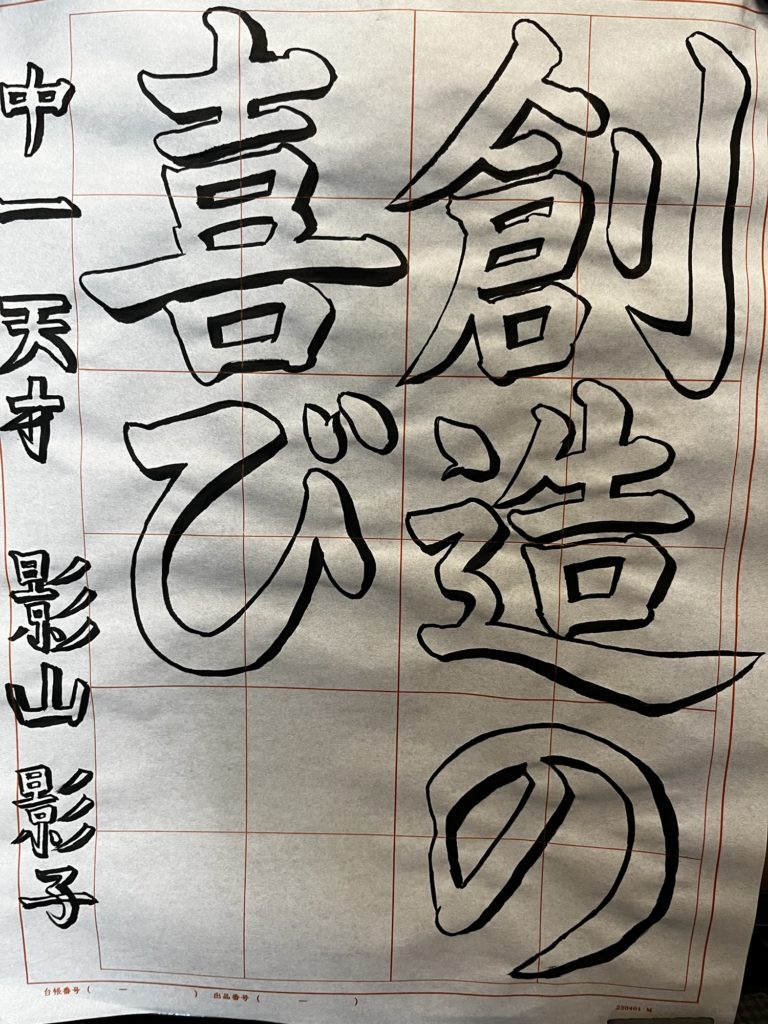 創造の
喜び
中一 天才 影山 影子
台帳番号( ー ) 出品番号( ー )
230401 M